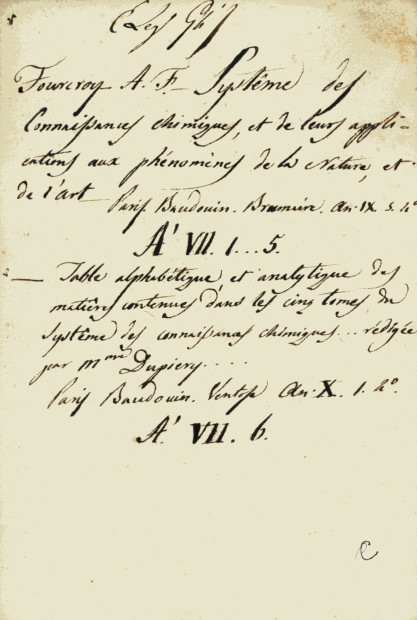 Fourcroy A. F. Systême des
Connaissances chimiques, et de leurs appli-
cations aux phénomènes de la Nature, et
de l'art Paris Baudouin. Brumaire. An. IX. 5. 4°
A' VII. 1...5.
— Table alphabétique et analytique des
matières contenues dans les cinq tomes du
système des connaissances chimiques... rédigée
par Mme Dupiery....
Paris Baudouin. Ventose An. X. 1. 4°.
A' VII. 6.